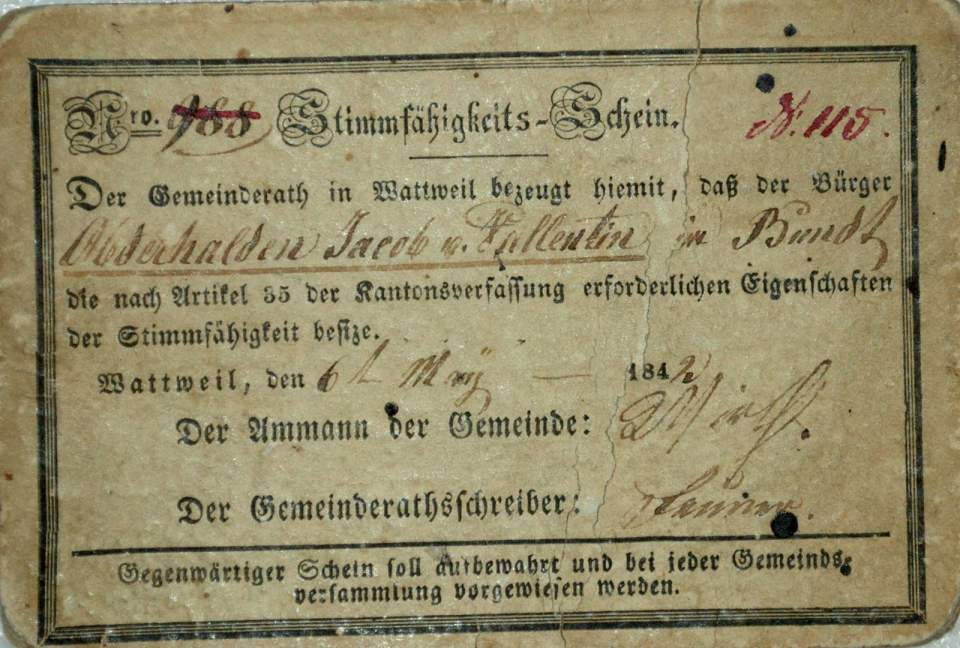 Nro. 988 Stimmfähigkeits-Schein. N. 115.
Der Gemeinderath in Wattweil bezeugt hiemit, daß der Bürger
Abderhalden Jacob v. Vallentin in Bundt
die nach Artikel 35 der Kantonsverfassung erforderlichen Eigenschaften
der Stimmfähigkeit besize.
Wattweil, den 6t May — 1842
Der Ammann der Gemeinde:
Der Gemeinderathsschreiber:
Gegenwärtiger Schein soll aufbewahrt und bei jeder Gemeinds-
versammlung vorgewiesen werden.